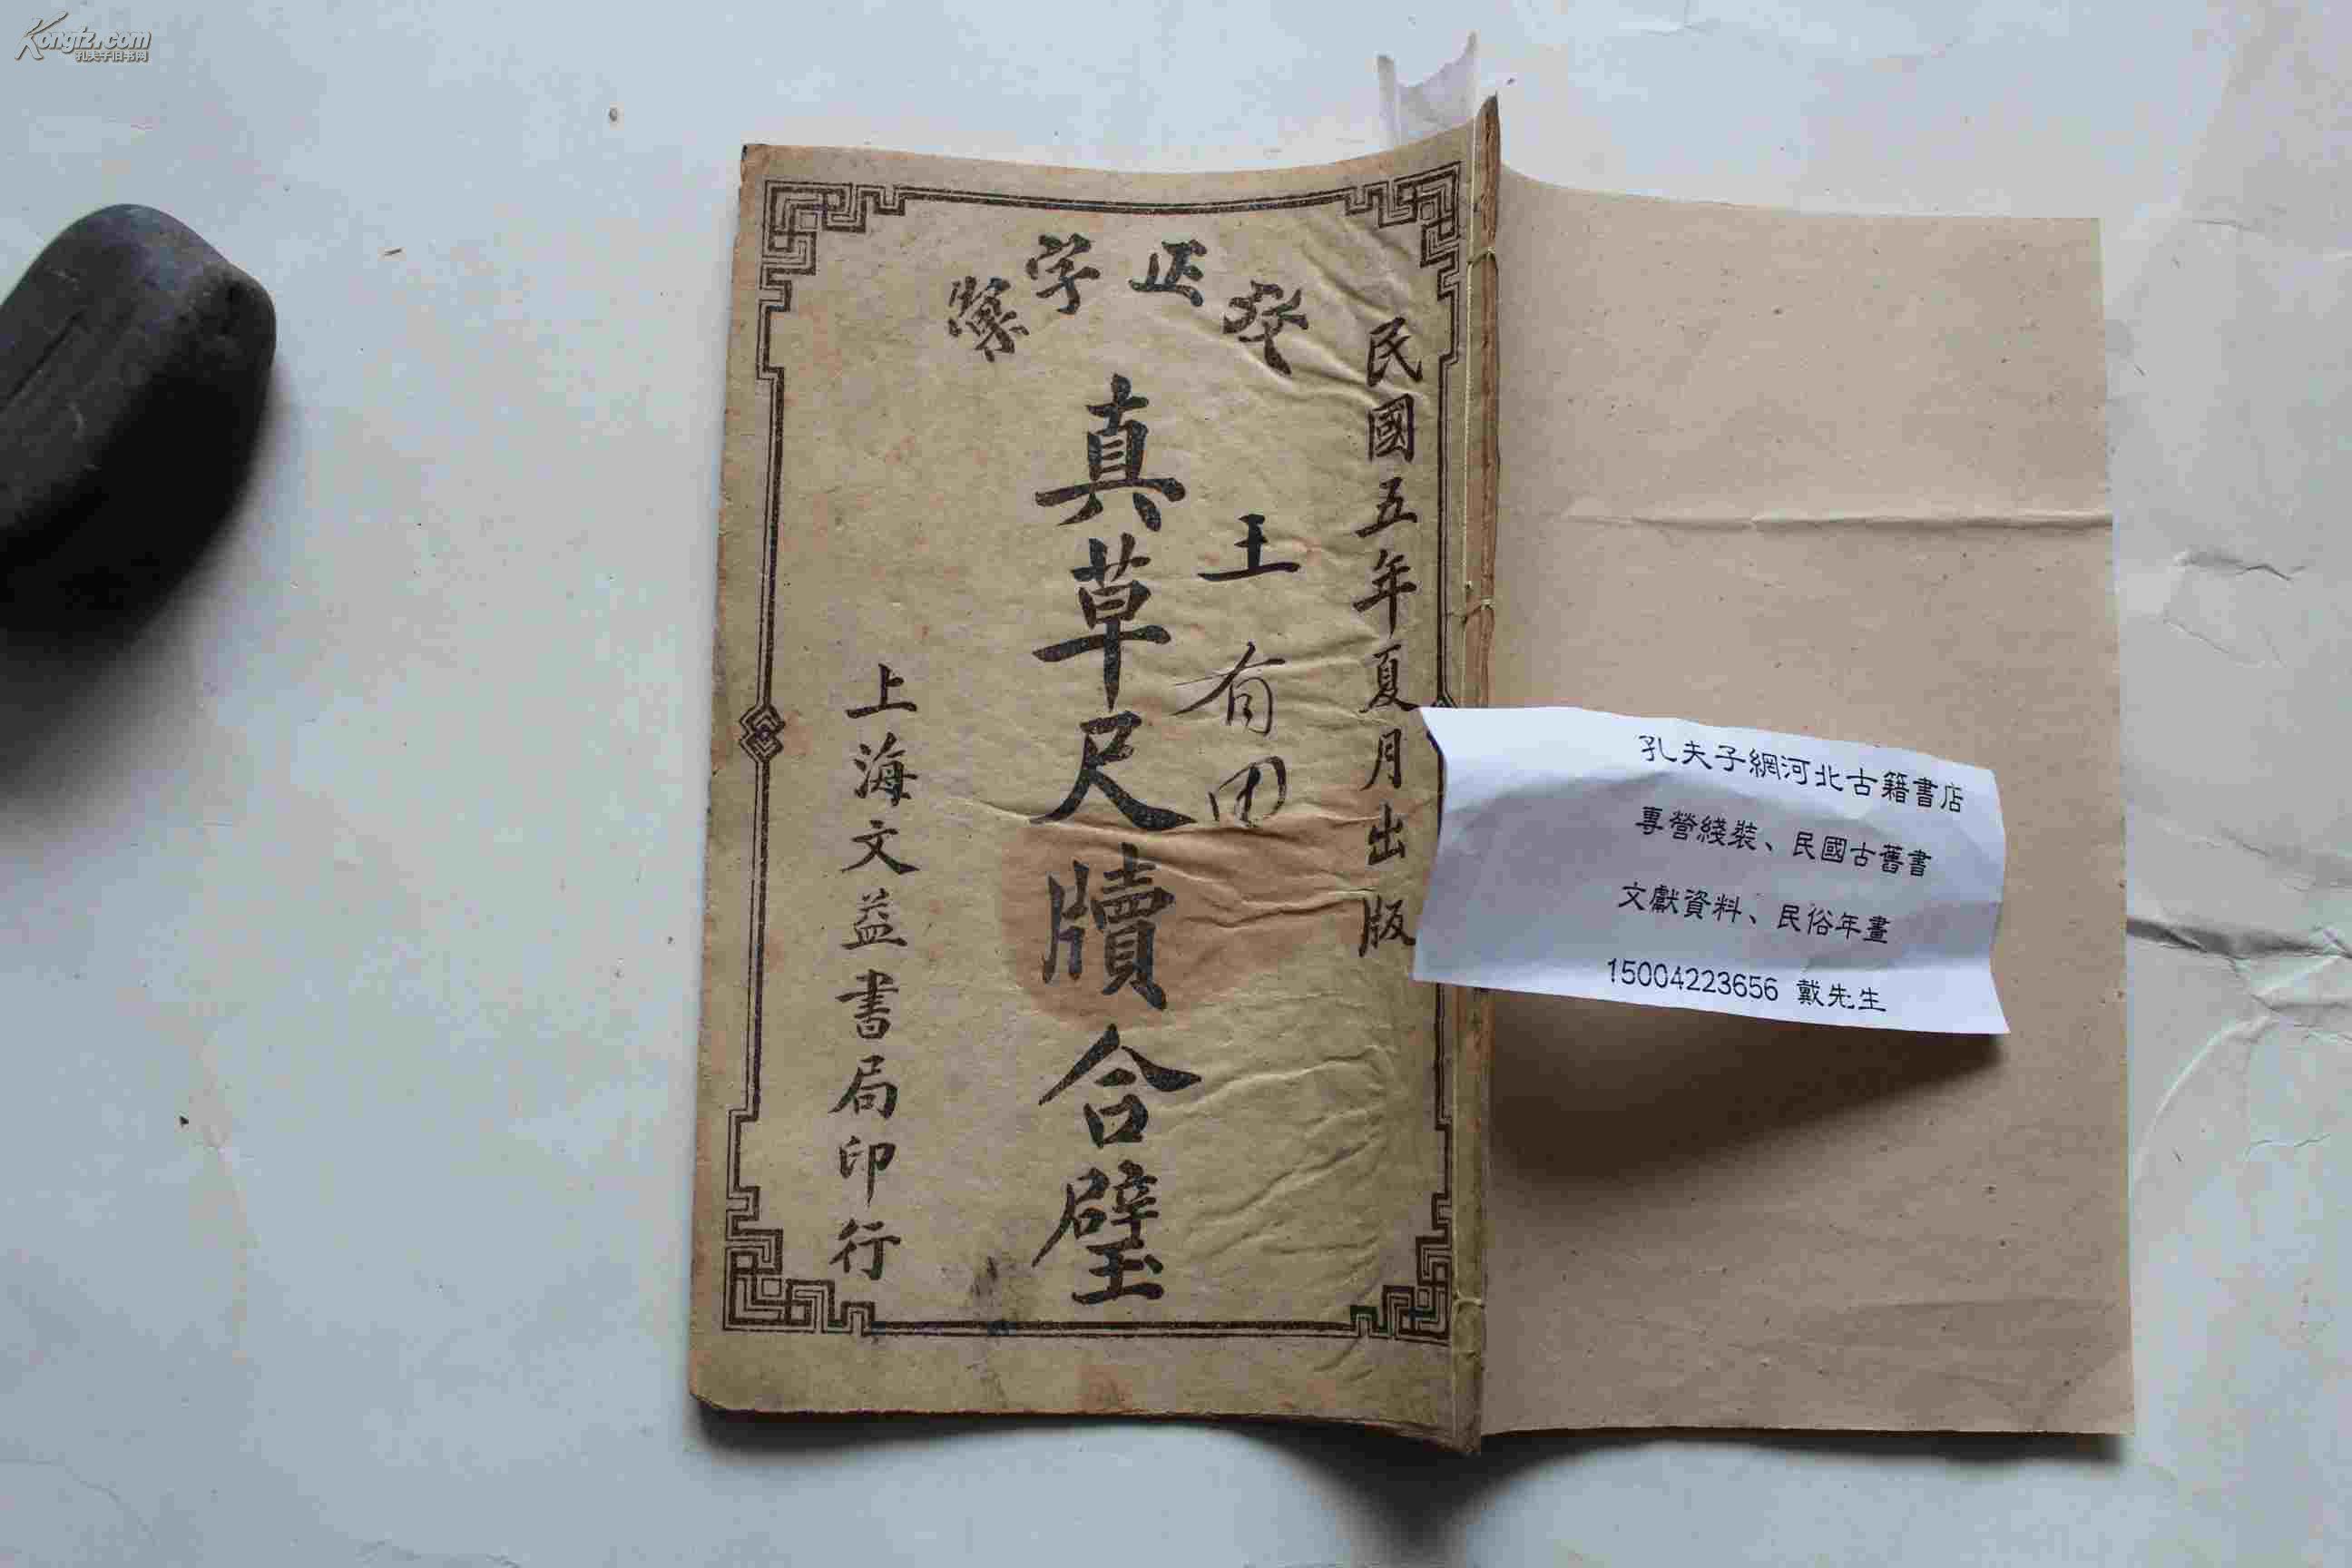 Kongfz.com
孔夫子旧书网
攷正字彙
民國五年夏月出版
王有田
真草尺牘合璧
上海文益書局印行
孔夫子網河北古籍書店
專營綫裝、民國古舊書
文獻資料、民俗年畫
15004223656 戴先生